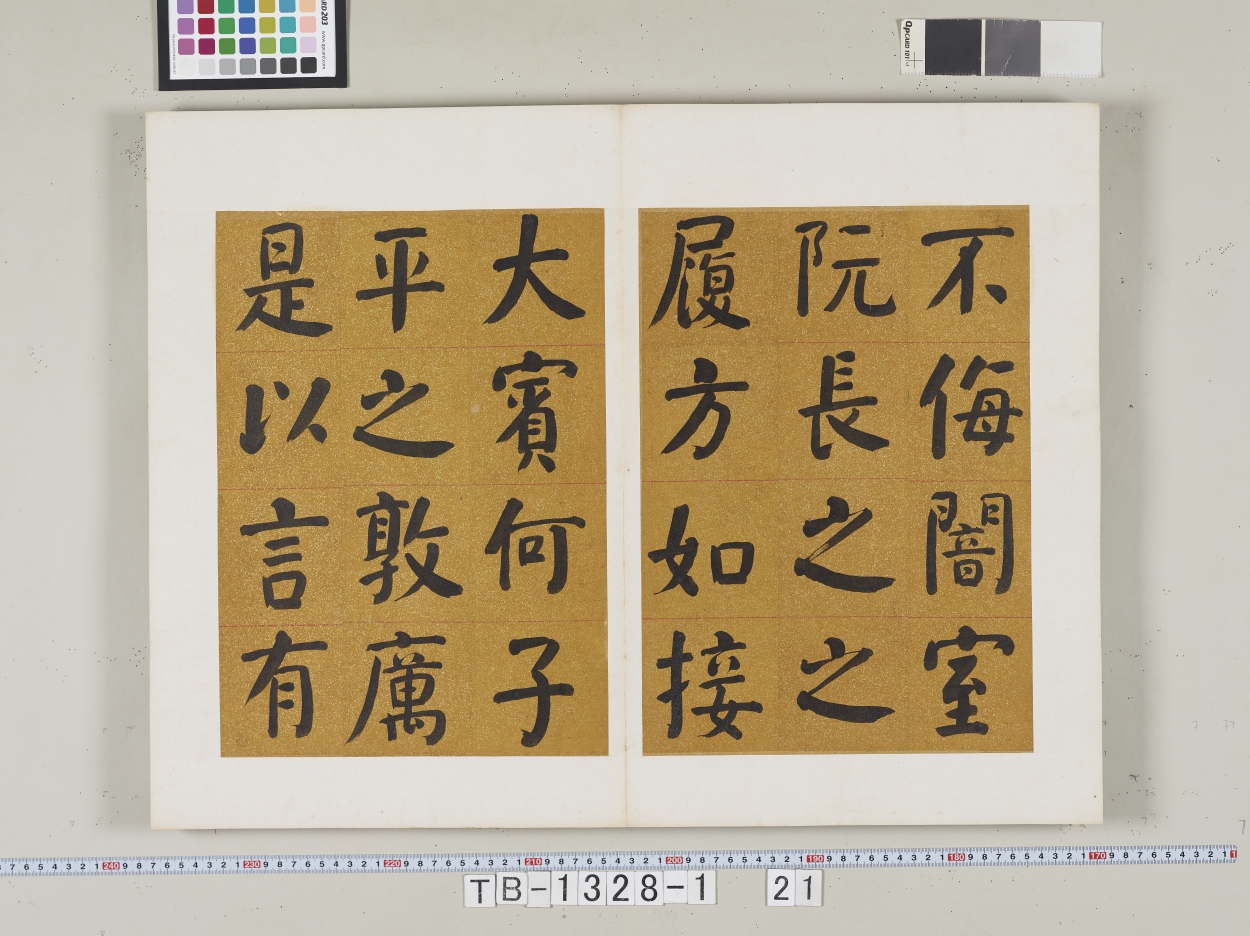 不侮闇室
阮長之之
履方如接
大賓何子
平之敦厲
是以言有
TB-1328-1 21